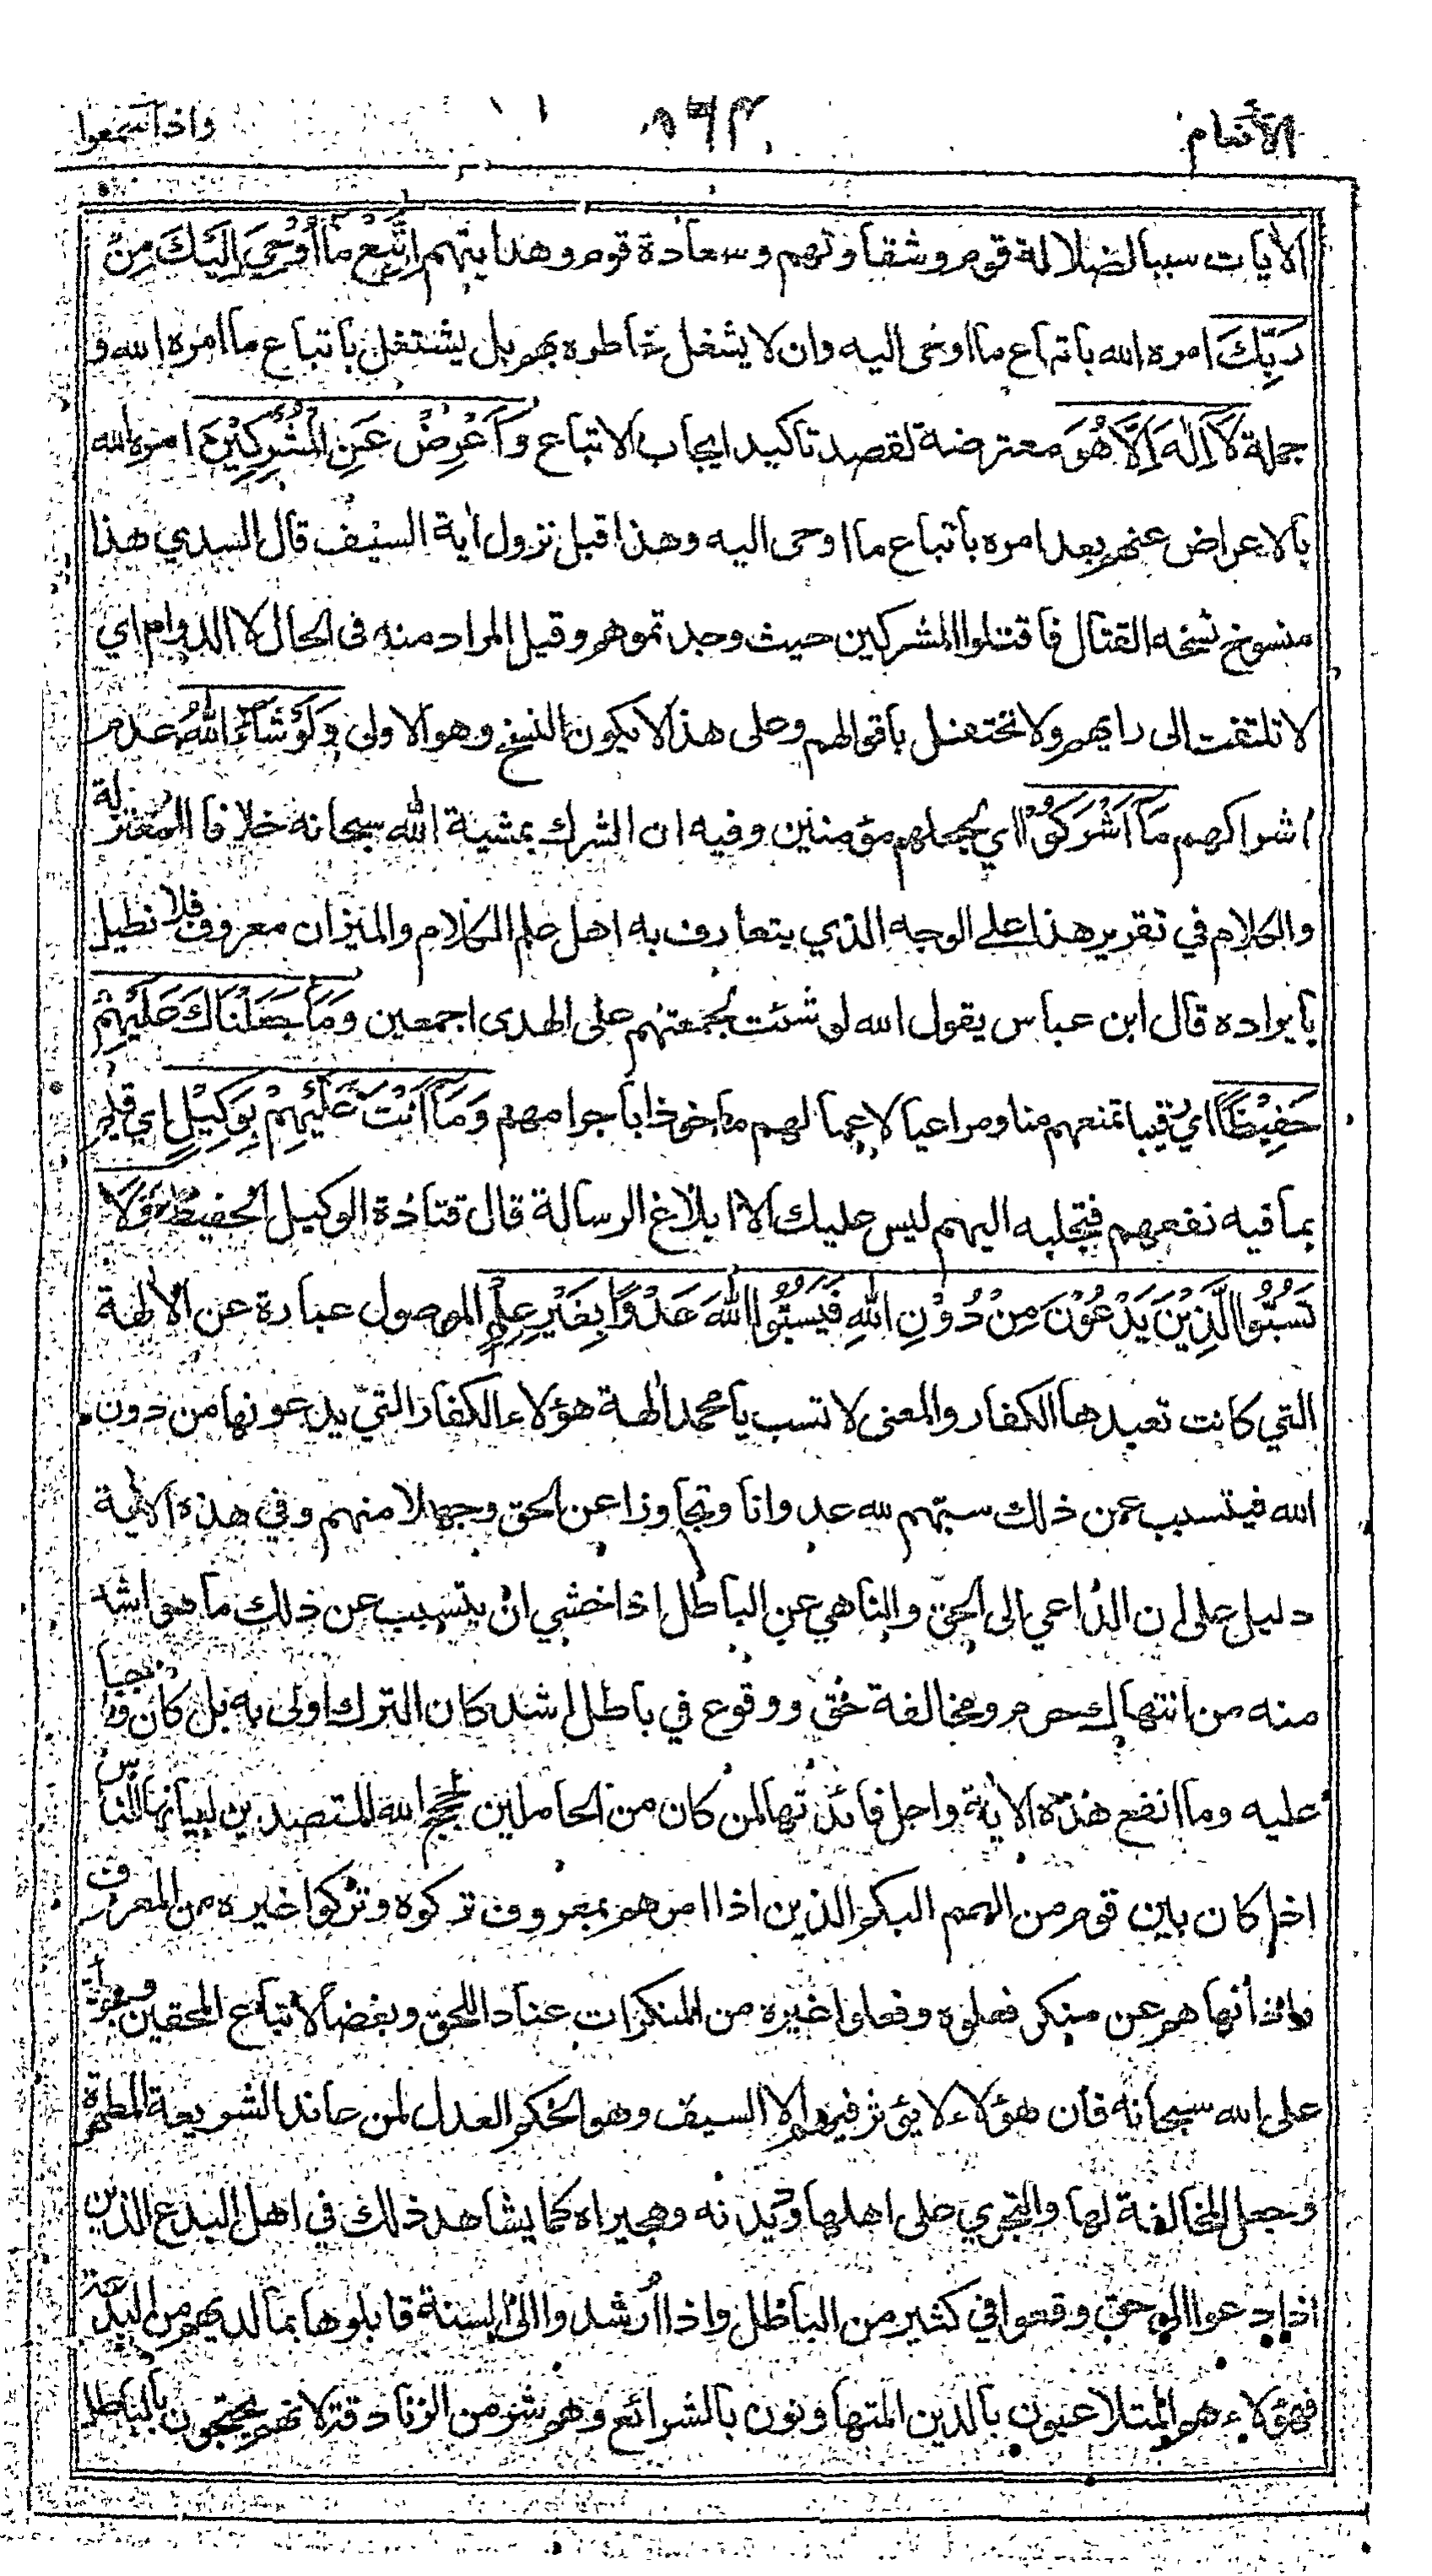 الأنعام ١٦٣ واذا سمعوا
الآيات سببا لضلالة قوم وشقاوتهم وسعادة قوم وهدايتهم اِتَّبِعْ مَآ اُوْحِيَ اِلَيْكَ مِنْ
رَبِّكَ امره الله باتباع ما اوحى اليه وان لا يشغل خاطره بهم بل يشتغل باتباع ما امره الله و
جملة لَآ اِلٰهَ اِلَّا هُوَ معترضة لقصد تاكيد ايجاب الاتباع وَاَعْرِضْ عَنِ الْمُشْرِكِيْنَ امره الله
بالاعراض عنهم بعد امره باتباع ما اوحى اليه وهذا قبل نزول اٰية السيف قال السدي هذا
منسوخ نسخه القتال فاقتلوا المشركين حيث وجدتموهم وقيل المراد منه فى الحال لا الدوام اي
لا تلتفت الى رايهم ولا تحتفل باقوالهم وعلى هذا لا يكون النسخ وهو الاولى وَلَوْ شَآءَ اللّٰهُ عدم
اشراكهم مَآ اَشْرَكُوْا اي لجعلهم مؤمنين وفيه ان الشرك بمشية الله سبحانه خلافا للمعتزلة
والكلام في تقرير هذا على الوجه الذي يتعارف به اهل علم الكلام والميزان معروف فلا نطيل
بايراده قال ابن عباس يقول الله لو شئت لجمعتهم على الهدى اجمعين وَمَا جَعَلْنَاكَ عَلَيْهِمْ
حَفِيْظًا اي رقيبا تمنعهم منا ومراعيا لاعمالهم ماخوذا باجرامهم وَمَآ اَنْتَ عَلَيْهِمْ بِوَكِيْلٍ اي قيم
بما فيه نفعهم فتجلبه اليهم ليس عليك الا ابلاغ الرسالة قال قتادة الوكيل الحفيظ وَلَا
تَسُبُّوا الَّذِيْنَ يَدْعُوْنَ مِنْ دُوْنِ اللّٰهِ فَيَسُبُّوا اللّٰهَ عَدْوًا بِغَيْرِ عِلْمٍ الموصول عبارة عن الاٰلهة
التي كانت تعبدها الكفار والمعنى لا تسب يا محمد اٰلهة هؤلاء الكفار التي يدعونها من دون
الله فيتسبب عن ذلك سبهم لله عدوانا وتجاوزا عن الحق وجهلا منهم وفي هذه الاٰية
دليل على ان الداعي الى الحق والناهي عن الباطل اذا خشي ان يتسبب عن ذلك ما هو اشد
منه من انتهاك حرم ومخالفة حق ووقوع في باطل اشد كان الترك اولى به بل كان واجبا
عليه وما انفع هذه الاٰية واجل فائدتها لمن كان من الحاملين لحجج الله المتصدين لبيانها للناس
اذا كان بين قوم من الصم البكم الذين اذا امرهم بمعروف تركوه وتركوا غيره من المعروف
واذا نهاهم عن منكر فعلوه وفعلوا غيره من المنكرات عنادا للحق وبغضا لاتباع المحقين وجرأة
على الله سبحانه فان هؤلاء لا يؤثر فيهم الا السيف وهو الحكم العدل لمن عاند الشريعة المطهرة
وجعل المخالفة لها والتجري على اهلها ديدنه وهجيراه كما يشاهد ذلك في اهل البدع الذين
اذا دعوا الى حق وقعوا في كثير من الباطل واذا ارشدوا الى السنة قابلوها بما لديهم من البدعة
فهؤلاء هم المتلاعبون بالدين المتهاونون بالشرائع وهم شر من الزنادقة لانهم يحتجون بالباطل